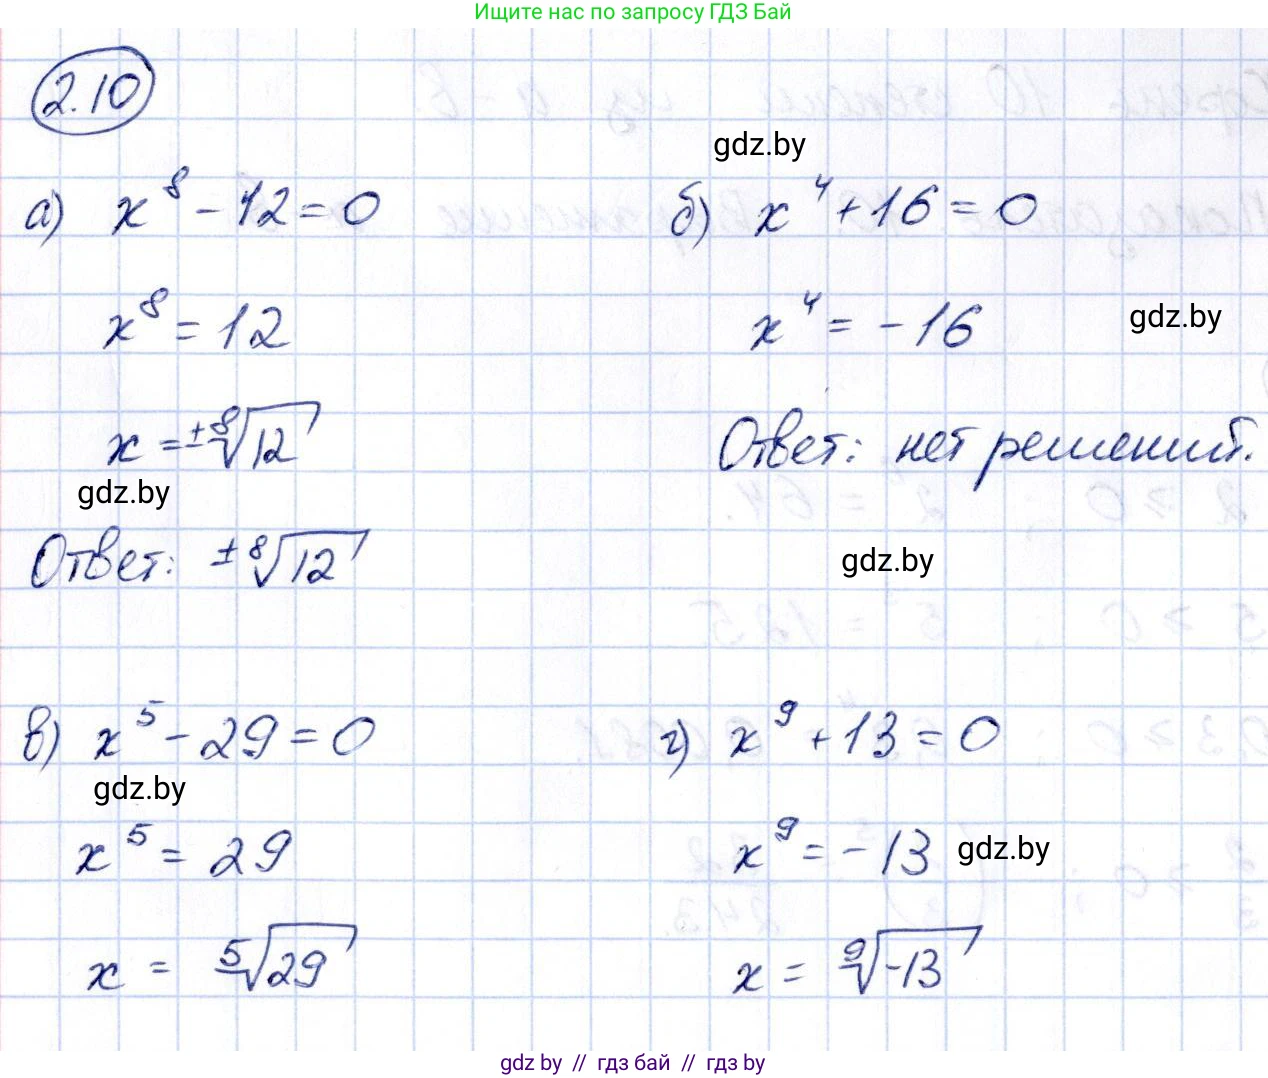 Ищите нас по запросу ГДЗ Бай
2.10
gdz.by
а) x⁸ - 12 = 0
x⁸ = 12
x = ±⁸√12
gdz.by
Ответ: ±⁸√12
б) x⁴ + 16 = 0
x⁴ = -16
gdz.by
Ответ: нет решений.
gdz.by
в) x⁵ - 29 = 0
gdz.by
x⁵ = 29
x = ⁵√29
г) x⁹ + 13 = 0
x⁹ = -13
gdz.by
x = ⁹√-13
gdz by // гдз бай // гдз by